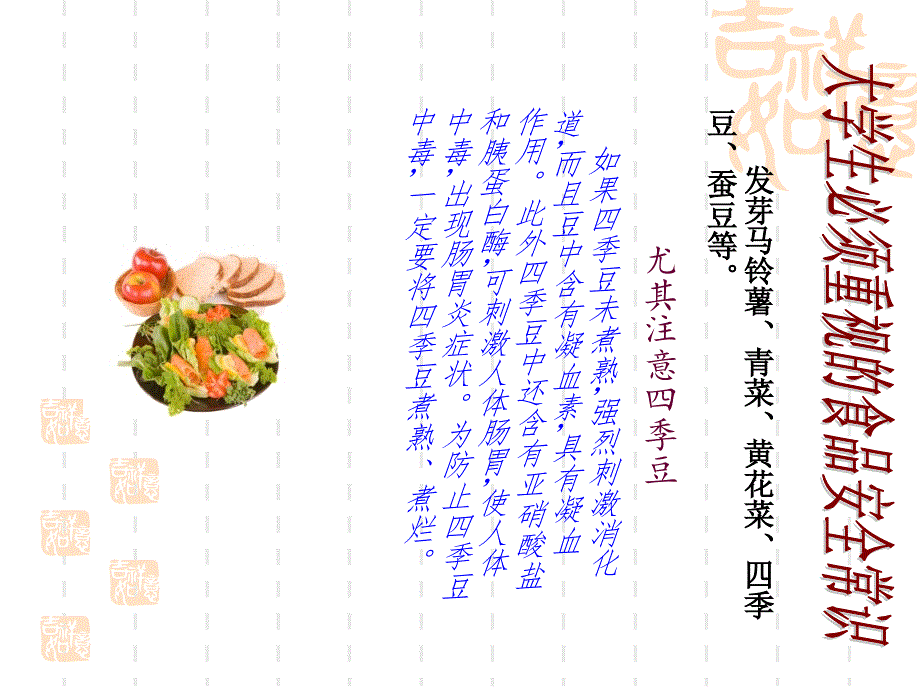 大学生必须重视的食品安全常识
发芽马铃薯、青菜、黄花菜、四季
豆、蚕豆等。
尤其注意四季豆
如果四季豆未煮熟,强烈刺激消化
道,而且豆中含有凝血素,具有凝血
作用。此外四季豆中还含有亚硝酸盐
和胰蛋白酶,可刺激人体肠胃,使人体
中毒,出现肠胃炎症状。为防止四季豆
中毒,一定要将四季豆煮熟、煮烂。
吉祥如意
吉祥如意
吉祥如意
吉祥如意
吉祥如意
吉祥如意